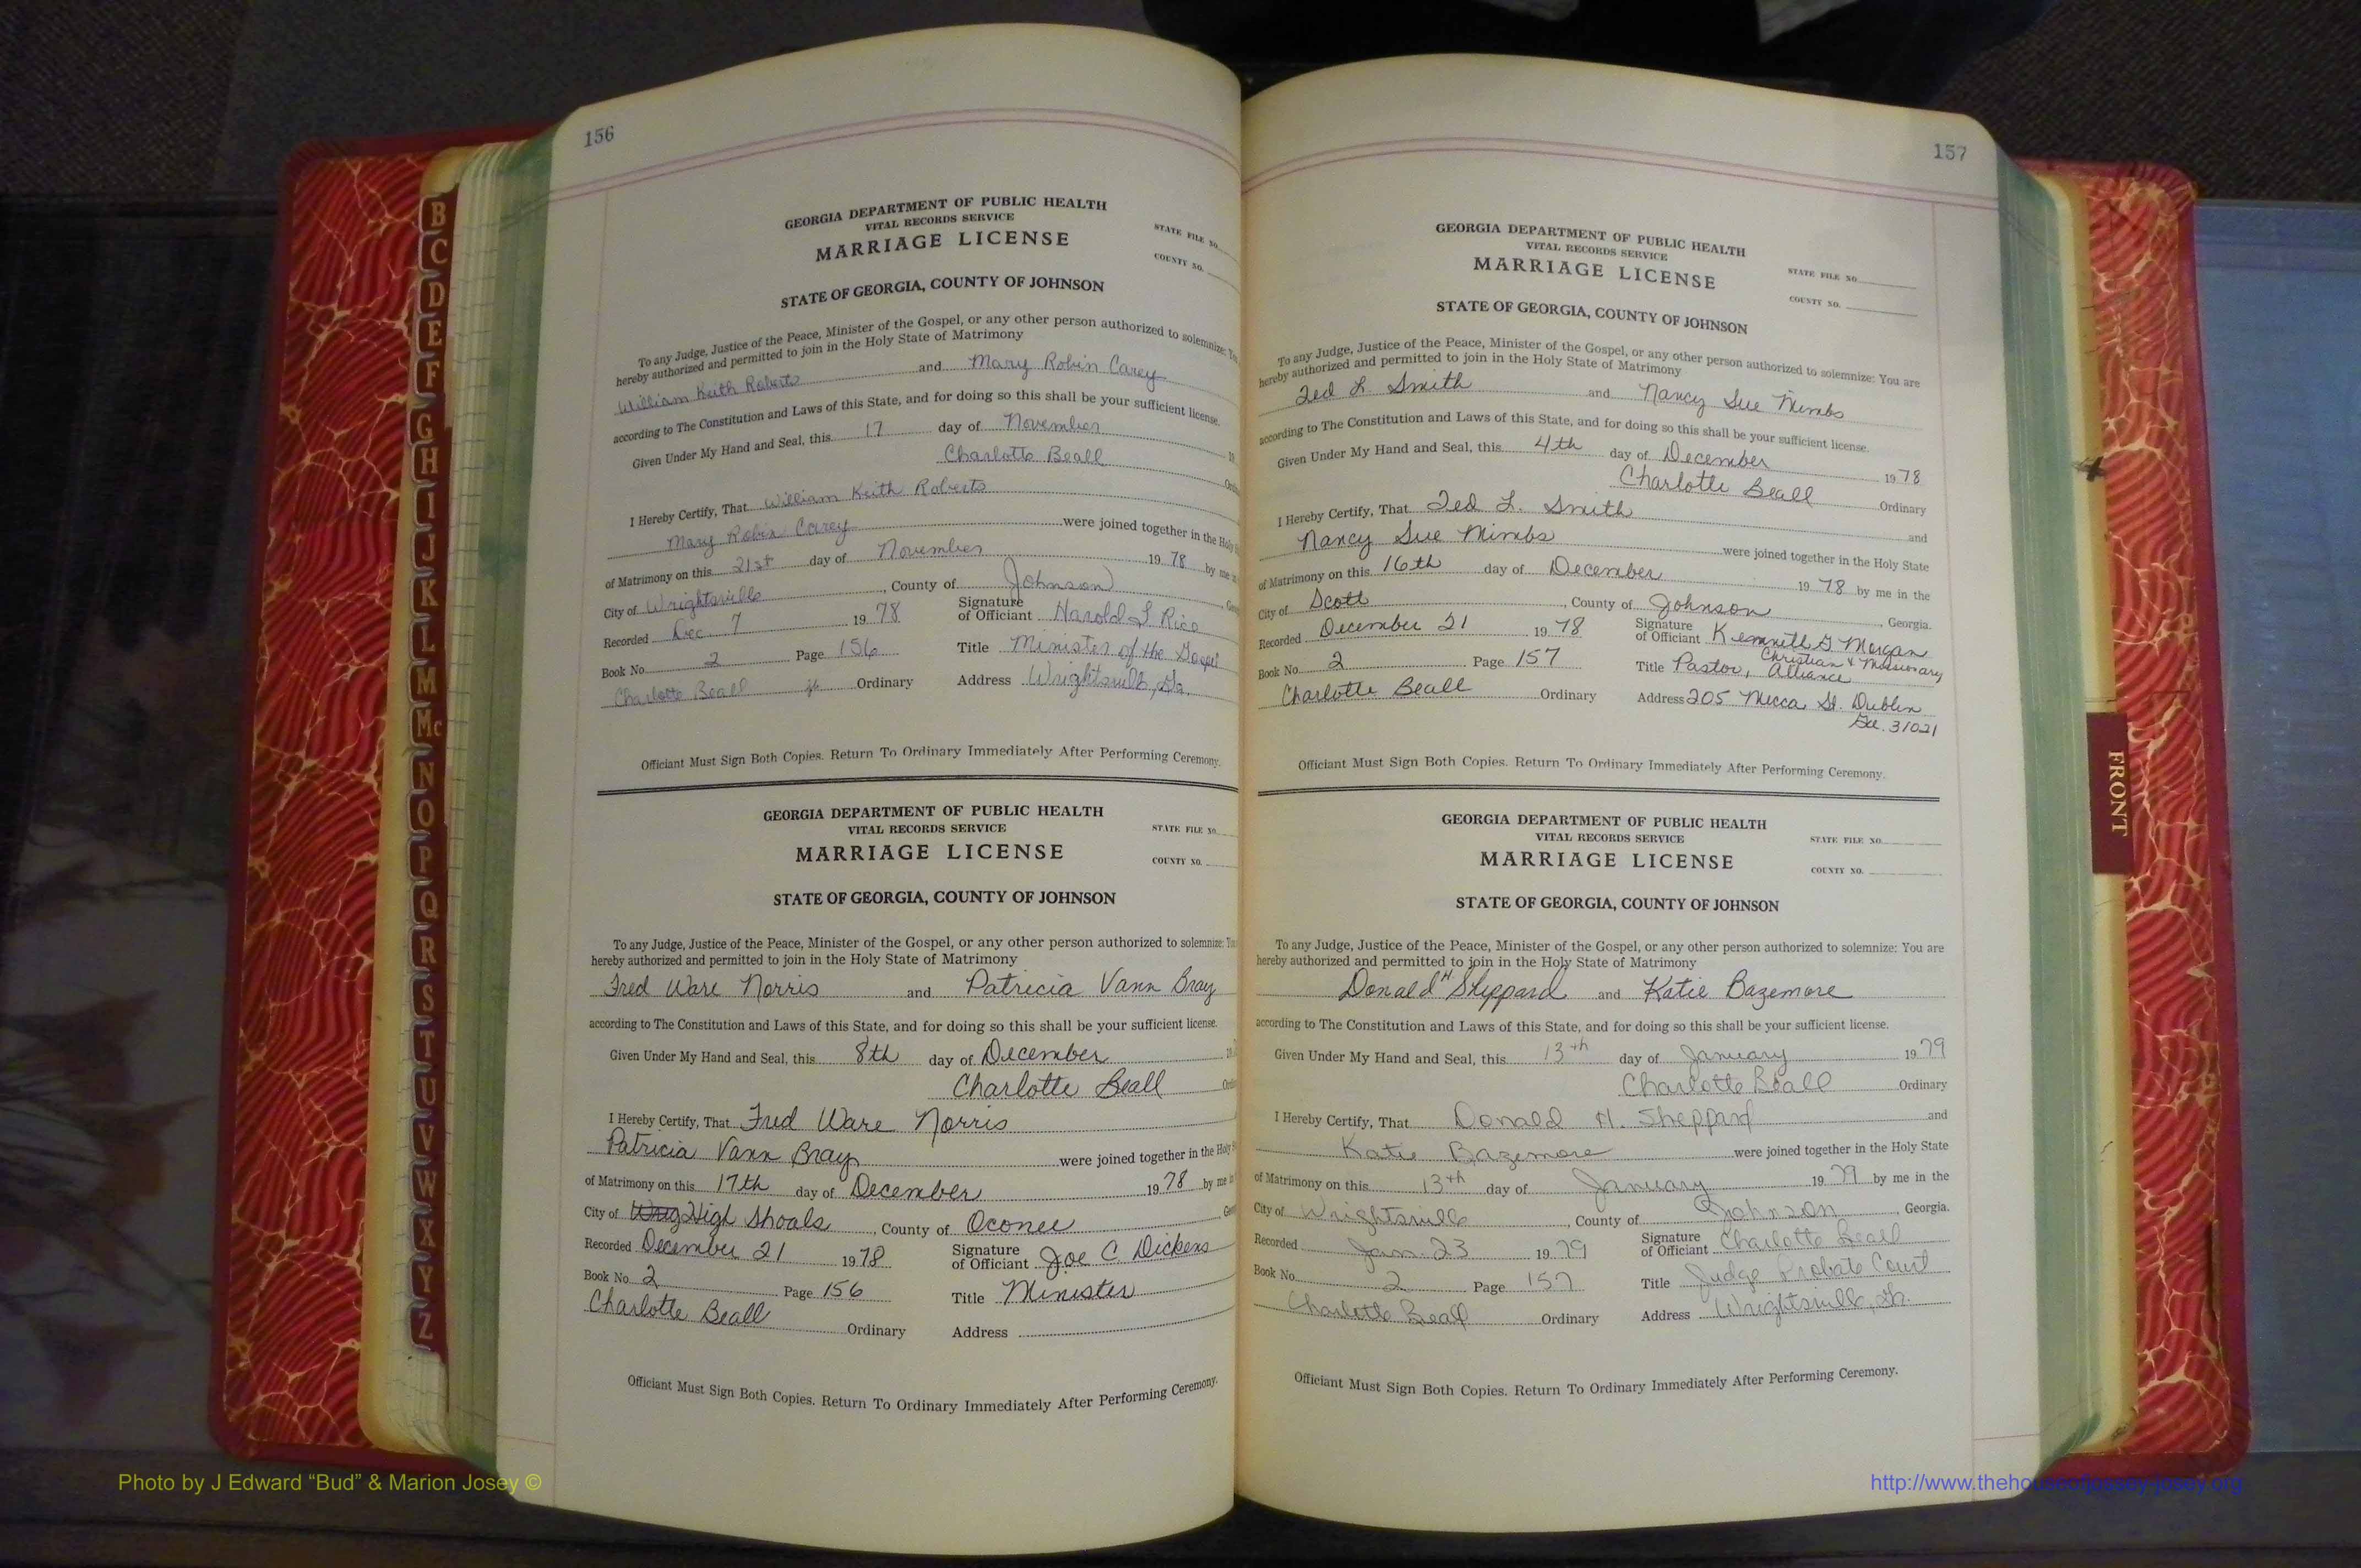 156
GEORGIA DEPARTMENT OF PUBLIC HEALTH
VITAL RECORDS SERVICE
MARRIAGE LICENSE
STATE FILE NO.
COUNTY NO.
STATE OF GEORGIA, COUNTY OF JOHNSON
To any Judge, Justice of the Peace, Minister of the Gospel, or any other person authorized to solemnize:
hereby authorized and permitted to join in the Holy State of Matrimony
William Keith Roberts and Mary Robin Carey
according to The Constitution and Laws of this State, and for doing so this shall be your sufficient license.
Given Under My Hand and Seal, this 17 day of November
Charlotte Beall
I Hereby Certify, That William Keith Roberts
Mary Robin Carey were joined together in the Holy
of Matrimony on this 21st day of November 1978 by me
City of Wrightsville, County of Johnson
Recorded Dec 7 1978 Signature of Officiant Harold L Rice
Book No. 2 Page 156 Title Minister of the Gospel
Charlotte Beall Ordinary Address Wrightsville, Ga.
Officiant Must Sign Both Copies. Return To Ordinary Immediately After Performing Ceremony.
GEORGIA DEPARTMENT OF PUBLIC HEALTH
VITAL RECORDS SERVICE
MARRIAGE LICENSE
STATE FILE NO.
COUNTY NO.
STATE OF GEORGIA, COUNTY OF JOHNSON
To any Judge, Justice of the Peace, Minister of the Gospel, or any other person authorized to solemnize:
hereby authorized and permitted to join in the Holy State of Matrimony
Fred Ware Norris and Patricia Vann Bray
according to The Constitution and Laws of this State, and for doing so this shall be your sufficient license.
Given Under My Hand and Seal, this 8th day of December
Charlotte Beall
I Hereby Certify, That Fred Ware Norris
Patricia Vann Bray were joined together in the Holy
of Matrimony on this 17th day of December 1978 by me
City of High Shoals, County of Oconee
Recorded December 21 1978 Signature of Officiant Joe C Dickens
Book No. 2 Page 156 Title Minister
Charlotte Beall Ordinary Address
Officiant Must Sign Both Copies. Return To Ordinary Immediately After Performing Ceremony.
157
GEORGIA DEPARTMENT OF PUBLIC HEALTH
VITAL RECORDS SERVICE
MARRIAGE LICENSE
STATE FILE NO.
COUNTY NO.
STATE OF GEORGIA, COUNTY OF JOHNSON
To any Judge, Justice of the Peace, Minister of the Gospel, or any other person authorized to solemnize: You are
hereby authorized and permitted to join in the Holy State of Matrimony
Ted L. Smith and Nancy Sue Mimbs
according to The Constitution and Laws of this State, and for doing so this shall be your sufficient license.
Given Under My Hand and Seal, this 4th day of December 1978
Charlotte Beall Ordinary
I Hereby Certify, That Ted L. Smith and
Nancy Sue Mimbs were joined together in the Holy State
of Matrimony on this 16th day of December 1978 by me in the
City of Scott, County of Johnson, Georgia.
Recorded December 21 1978 Signature of Officiant Kenneth G Morgan
Book No. 2 Page 157 Title Pastor, Christian & Missionary Alliance
Charlotte Beall Ordinary Address 205 Mecca St. Dublin
Ga. 31021
Officiant Must Sign Both Copies. Return To Ordinary Immediately After Performing Ceremony.
GEORGIA DEPARTMENT OF PUBLIC HEALTH
VITAL RECORDS SERVICE
MARRIAGE LICENSE
STATE FILE NO.
COUNTY NO.
STATE OF GEORGIA, COUNTY OF JOHNSON
To any Judge, Justice of the Peace, Minister of the Gospel, or any other person authorized to solemnize: You are
hereby authorized and permitted to join in the Holy State of Matrimony
Donald H. Sheppard and Katie Bazemore
according to The Constitution and Laws of this State, and for doing so this shall be your sufficient license.
Given Under My Hand and Seal, this 13th day of January 1979
Charlotte Beall Ordinary
I Hereby Certify, That Donald H. Sheppard and
Katie Bazemore were joined together in the Holy State
of Matrimony on this 13th day of January 1979 by me in the
City of Wrightsville, County of Johnson, Georgia.
Recorded Jan. 23 1979 Signature of Officiant Charlotte Beall
Book No. 2 Page 157 Title Judge Probate Court
Charlotte Beall Ordinary Address Wrightsville, Ga.
Officiant Must Sign Both Copies. Return To Ordinary Immediately After Performing Ceremony.
B
C
D
E
F
G
H
I
J
K
L
M
Mc
N
O
P
Q
R
S
T
U
V
W
X
Y
Z
FRONT
Photo by J Edward “Bud” & Marion Josey ©
http://www.thehouseofjossey-josey.org